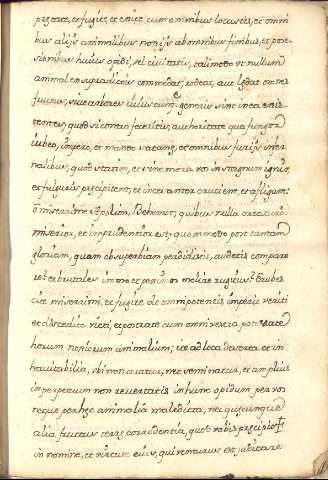 præstate, et fugite, et exite cum omnibus locustis, et omni
bus alijs animalibus noxijs ab omnibus finibus, et pose-
sionibus huius opidi, vel civitatis, tali modo ut nullum
animal ex supradictis commedat, rodeat, aut lædat omnes
fructus, sive arbores cuiuscumq; generis sint in ea exis
tentes, quod si contra feceritis, authoritate qua fungor
iubeo, impero, et mando satanæ, et omnibus furijs infer
nalibus, quod statim, et sine mora vos in stagnum ignis,
et sulphuris præcipitent, et in ea norter crucient, et afligant:
O miserrime Apolium, Behemot, quibus nulla creatura
miserior, et imprudentior est, quommodo post tantam
gloriam, quam ob superbiam perdidistis, audetis compare
re? et brutales immo et pessimos maliæ rugitus? Erubes
cite miserrimi, et fugite de omnipotentis imperio veriti
et discedite victi, et portate cum omni vestra potestate
horum noxiorum animalium, ite ad loca deserta et in
havitabilia, ubi non aratur, nec seminatur, et amplius
in perpetuum non revertatis in hunc opidum per vos
neque per hæc animalia maledicta, nec quæcumque
alia fructus terræ corrodentia, quod vobis præcipio ✝
in nomine, et virtute eius, qui venturus est judicare